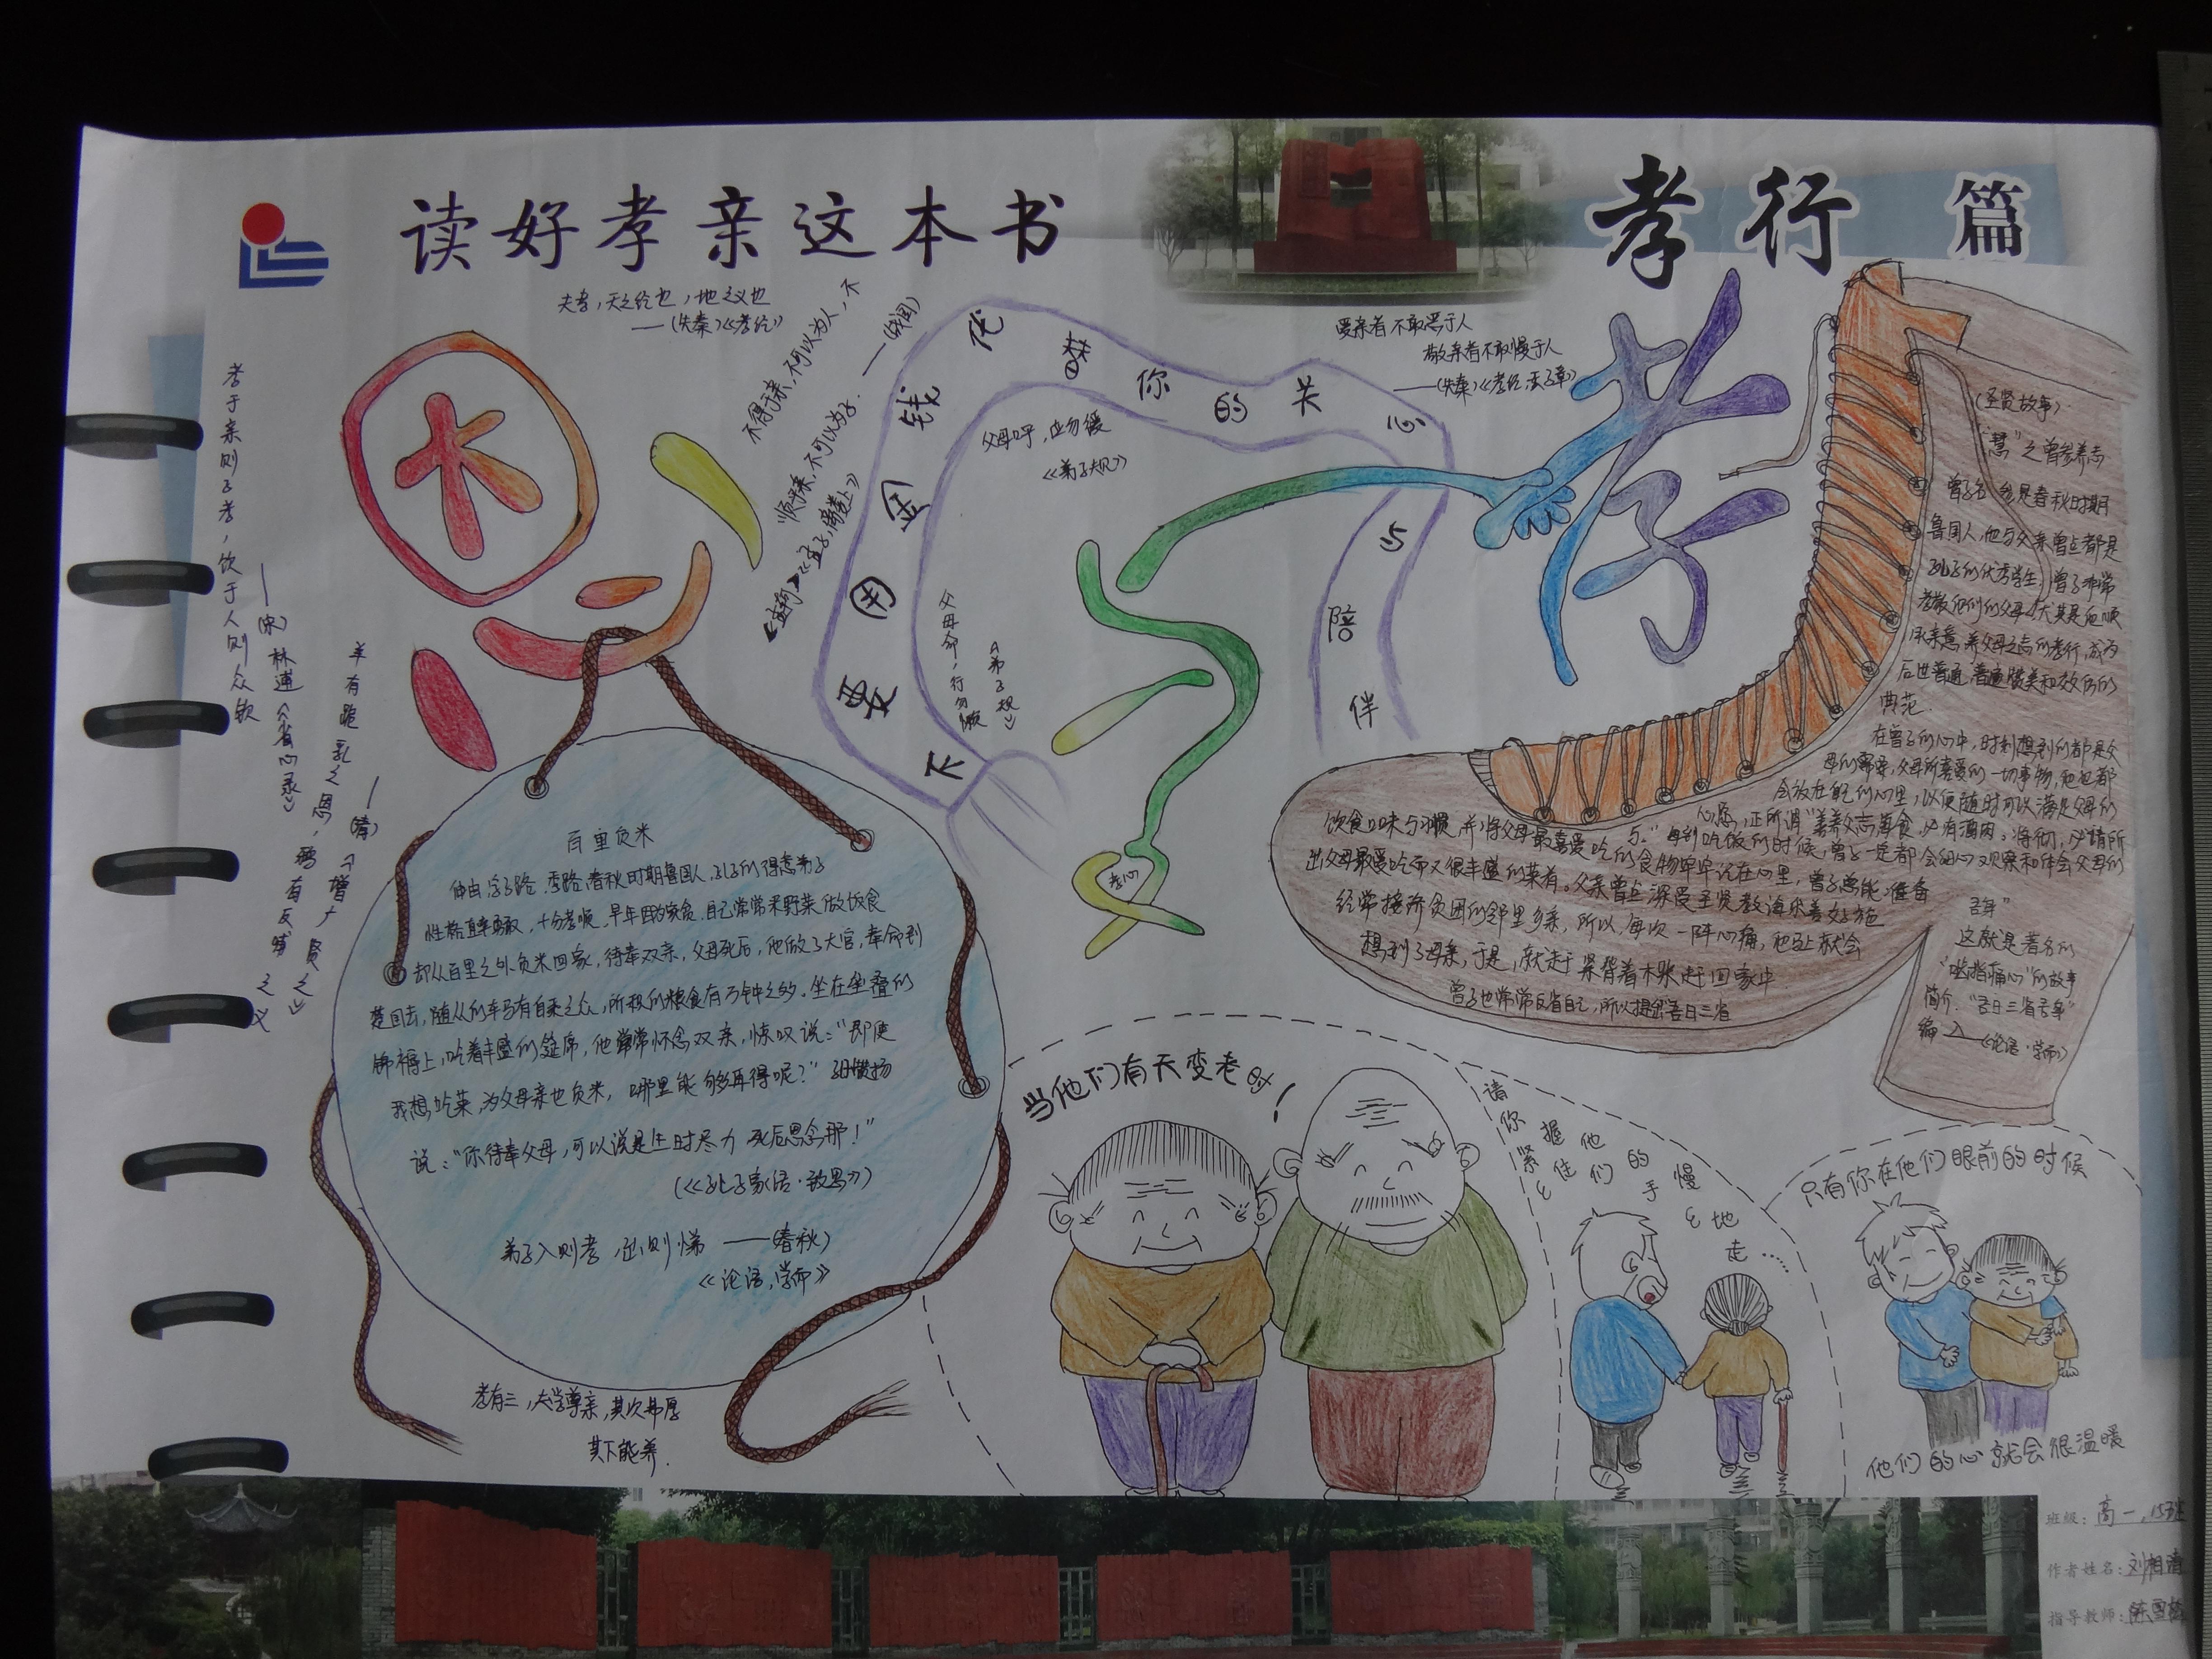 读好孝亲这本书
孝行篇
夫孝，天之经也，地之义也
——(先秦)《孝经》
孝于亲则子孝，钦于人则众钦
——(宋)林逋《省心录》
羊有跪乳之恩，鸦有反哺之义
——(清)《增广贤文》
不得乎亲，不可以为人，不
顺乎亲，不可以为子.
——(战国)
《孟子，离娄上》
不要用金钱代替你的关心与陪伴
父母呼，应勿缓
《弟子规》
父母命，行勿懒
《弟子规》
爱亲者不敢恶于人
敬亲者不敢慢于人
——(先秦)《孝经·天子章》
感
孝
孝心
百里负米
仲由，字子路、季路，春秋时期鲁国人，孔子的得意弟子
性格直率勇敢，十分孝顺，早年因为家贫，自己常常采野菜做饭食
却从百里之外负米回家，待奉双亲，父母死后，他做了大官，奉命到
楚国去，随从的车马有百乘之众，所积的粮食有万钟之多。坐在垒叠的
锦褥上，吃着丰盛的筵席，他常常怀念双亲，慨叹说：“即使
我想吃菜，为父母亲也负米，哪里能够再得呢？”孔赞扬
说：“你待奉父母，可以说是生时尽力 死后思念那！”
(《孔子家语·致思》)
弟子入则孝，出则悌 ——(春秋)
《论语，学而》
孝有三，大孝尊亲，其次弗辱
其下能养.
(圣贤故事)
曾子名参是春秋时期
鲁国人，他与父亲曾点都是
孔子的优秀学生，曾子非常
孝敬他们的父母，尤其是他顺
承亲意，养父母之志的孝行，成为
后世普通 普遍赞美和效仿的
典范.
在曾子的心中，时刻想到的都是父
母的需要，父母所喜爱的一切事物，他也都
会放在自己的心里，以便随时可以满足父母的
饮食口味与习惯，并将父母最喜爱吃的食物牢牢记在心里，曾子总能准备
出父母最爱吃而又很丰盛的菜肴。父亲曾点深受圣贤教诲乐善好施
经常接济贫困的邻里乡亲，所以，每次一阵心痛，他马上就会
想到了母亲，于是，就赶紧背着木柴赶回家中
曾子也常常反省自己，所以提出吾日三省
吾身”
这就是著名的
“啮指痛心”的故事
简介：“吾日三省吾身”
编入——《论语·学而》
当他们有天变老时！
请你紧紧握住他们的手慢慢地走……
只有你在他们眼前的时候
他们的心就会很温暖
班级：高一，15班
作者姓名：
指导教师：